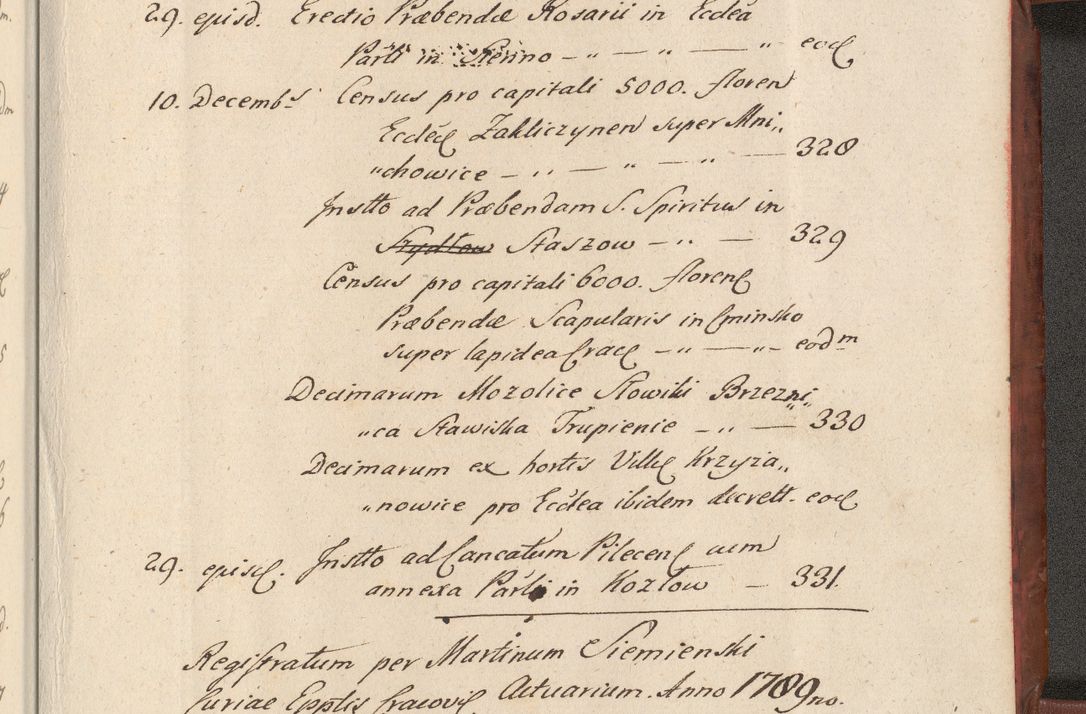 29. episd. Erectio Præbendæ Rosarii in Eccléa
Parli in Sienno – „ — „ — „ eod
10. Decembs Census pro capitali 5000. floren
Eccleæ Zakliczynen super Mni„
„chowice – „ — „ — „ — 328
Instto ad Præbendam S. Spiritus in
Szydłow Staszow – „ — 329
Census pro capitali 6000. floren
Præbendæ Scapularis in Cminsko
super lapidea Crac – „ — „ – eodm
Decimarum Mozolice Słowiki Brzezni„
„ca Stawiska Trupienie – „ — 330
Decimarum ex hortis Villæ Krzyża„
„nowice pro Ecclea ibidem decrett. eod
29. episd. Instto ad Cancatum Pilecen cum
annexa Parli in Kozłow – 331.
Registratum per Martinum Siemienski
Curiae Epplis Cracovi Actuarium. Anno 1789no.